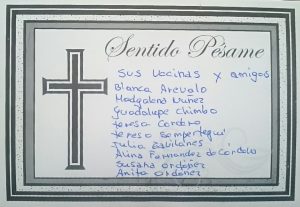 Sentido Pésame
Sus Vecinas y amigas
Blanca Arevalo
Magdalena Nuñez
Guadalupe Chimbo
Teresa Cordero
Teresa Sempertegui
Julia Avilanes
Alina Fernandez de Córdova
Susana Ordóñez
Anita Ordóñez